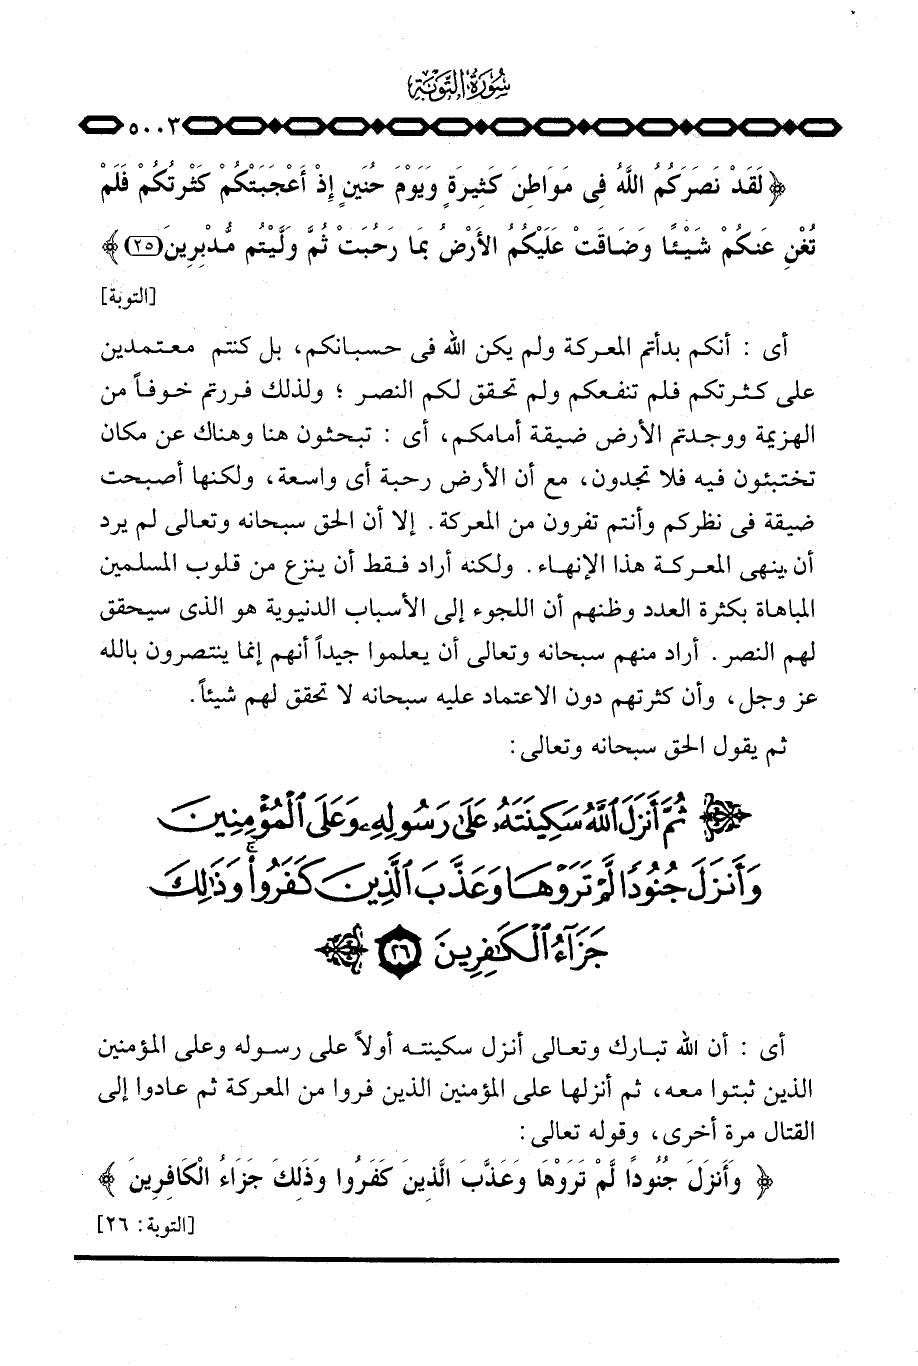 سُورَةُ التَّوْبَةِ
٥٠٠٣
﴿ لَقَدْ نَصَرَكُمُ اللَّهُ فِى مَوَاطِنَ كَثِيرَةٍ وَيَوْمَ حُنَيْنٍ إِذْ أَعْجَبَتْكُمْ كَثْرَتُكُمْ فَلَمْ
تُغْنِ عَنكُمْ شَيْئًا وَضَاقَتْ عَلَيْكُمُ الأَرْضُ بِمَا رَحُبَتْ ثُمَّ وَلَّيْتُم مُّدْبِرِينَ (٢٥) ﴾
[التوبة]
أى : أنكم بدأتم المعركة ولم يكن الله فى حسبانكم، بل كنتم معتمدين
على كثرتكم فلم تنفعكم ولم تحقق لكم النصر ؛ ولذلك فررتم خوفاً من
الهزيمة ووجدتم الأرض ضيقة أمامكم، أى : تبحثون هنا وهناك عن مكان
تختبئون فيه فلا تجدون، مع أن الأرض رحبة أى واسعة، ولكنها أصبحت
ضيقة فى نظركم وأنتم تفرون من المعركة. إلا أن الحق سبحانه وتعالى لم يرد
أن ينهى المعركة هذا الإنهاء. ولكنه أراد فقط أن ينزع من قلوب المسلمين
المباهاة بكثرة العدد وظنهم أن اللجوء إلى الأسباب الدنيوية هو الذى سيحقق
لهم النصر. أراد منهم سبحانه وتعالى أن يعلموا جيداً أنهم إنما ينتصرون بالله
عز وجل، وأن كثرتهم دون الاعتماد عليه سبحانه لا تحقق لهم شيئاً.
ثم يقول الحق سبحانه وتعالى:
﴿ ثُمَّ أَنزَلَ ٱللَّهُ سَكِينَتَهُۥ عَلَىٰ رَسُولِهِۦ وَعَلَى ٱلْمُؤْمِنِينَ
وَأَنزَلَ جُنُودًا لَّمْ تَرَوْهَا وَعَذَّبَ ٱلَّذِينَ كَفَرُوا۟ ۚ وَذَٰلِكَ
جَزَآءُ ٱلْكَٰفِرِينَ ٢٦ ﴾
أى : أن الله تبارك وتعالى أنزل سكينته أولاً على رسوله وعلى المؤمنين
الذين ثبتوا معه، ثم أنزلها على المؤمنين الذين فروا من المعركة ثم عادوا إلى
القتال مرة أخرى، وقوله تعالى:
﴿ وَأَنزَلَ جُنُوداً لَّمْ تَرَوْهَا وَعَذَّبَ الَّذِينَ كَفَرُوا وَذَلِكَ جَزَاءُ الْكَافِرِينَ ﴾
[التوبة: ٢٦]